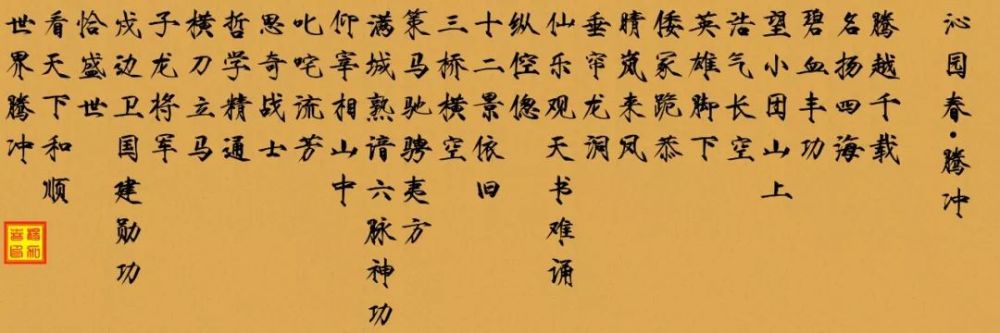 沁园春·腾冲
腾越千载
名扬四海
碧血丰功
望小团山上
浩气长空
英雄脚下
倭冢跪恭
晴岚来凤
垂帘龙洞
仙乐观天书难诵
纵倥偬
十二景依旧
三桥横空
策马驰骋夷方
满城熟谙六脉神功
仰宰相山中
叱咤流芳
思奇战士
哲学精通
横刀立马
子龙将军
戍边卫国建勋功
恰盛世
看天下和顺
世界腾冲